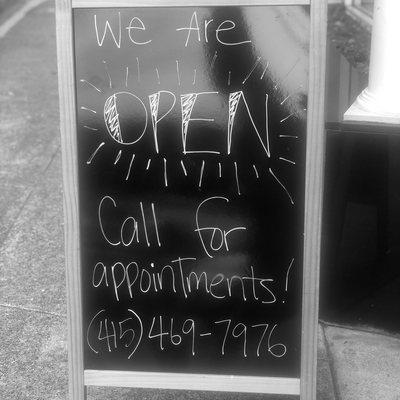 We Are
OPEN
Call for
appointments!
(415) 469-7976